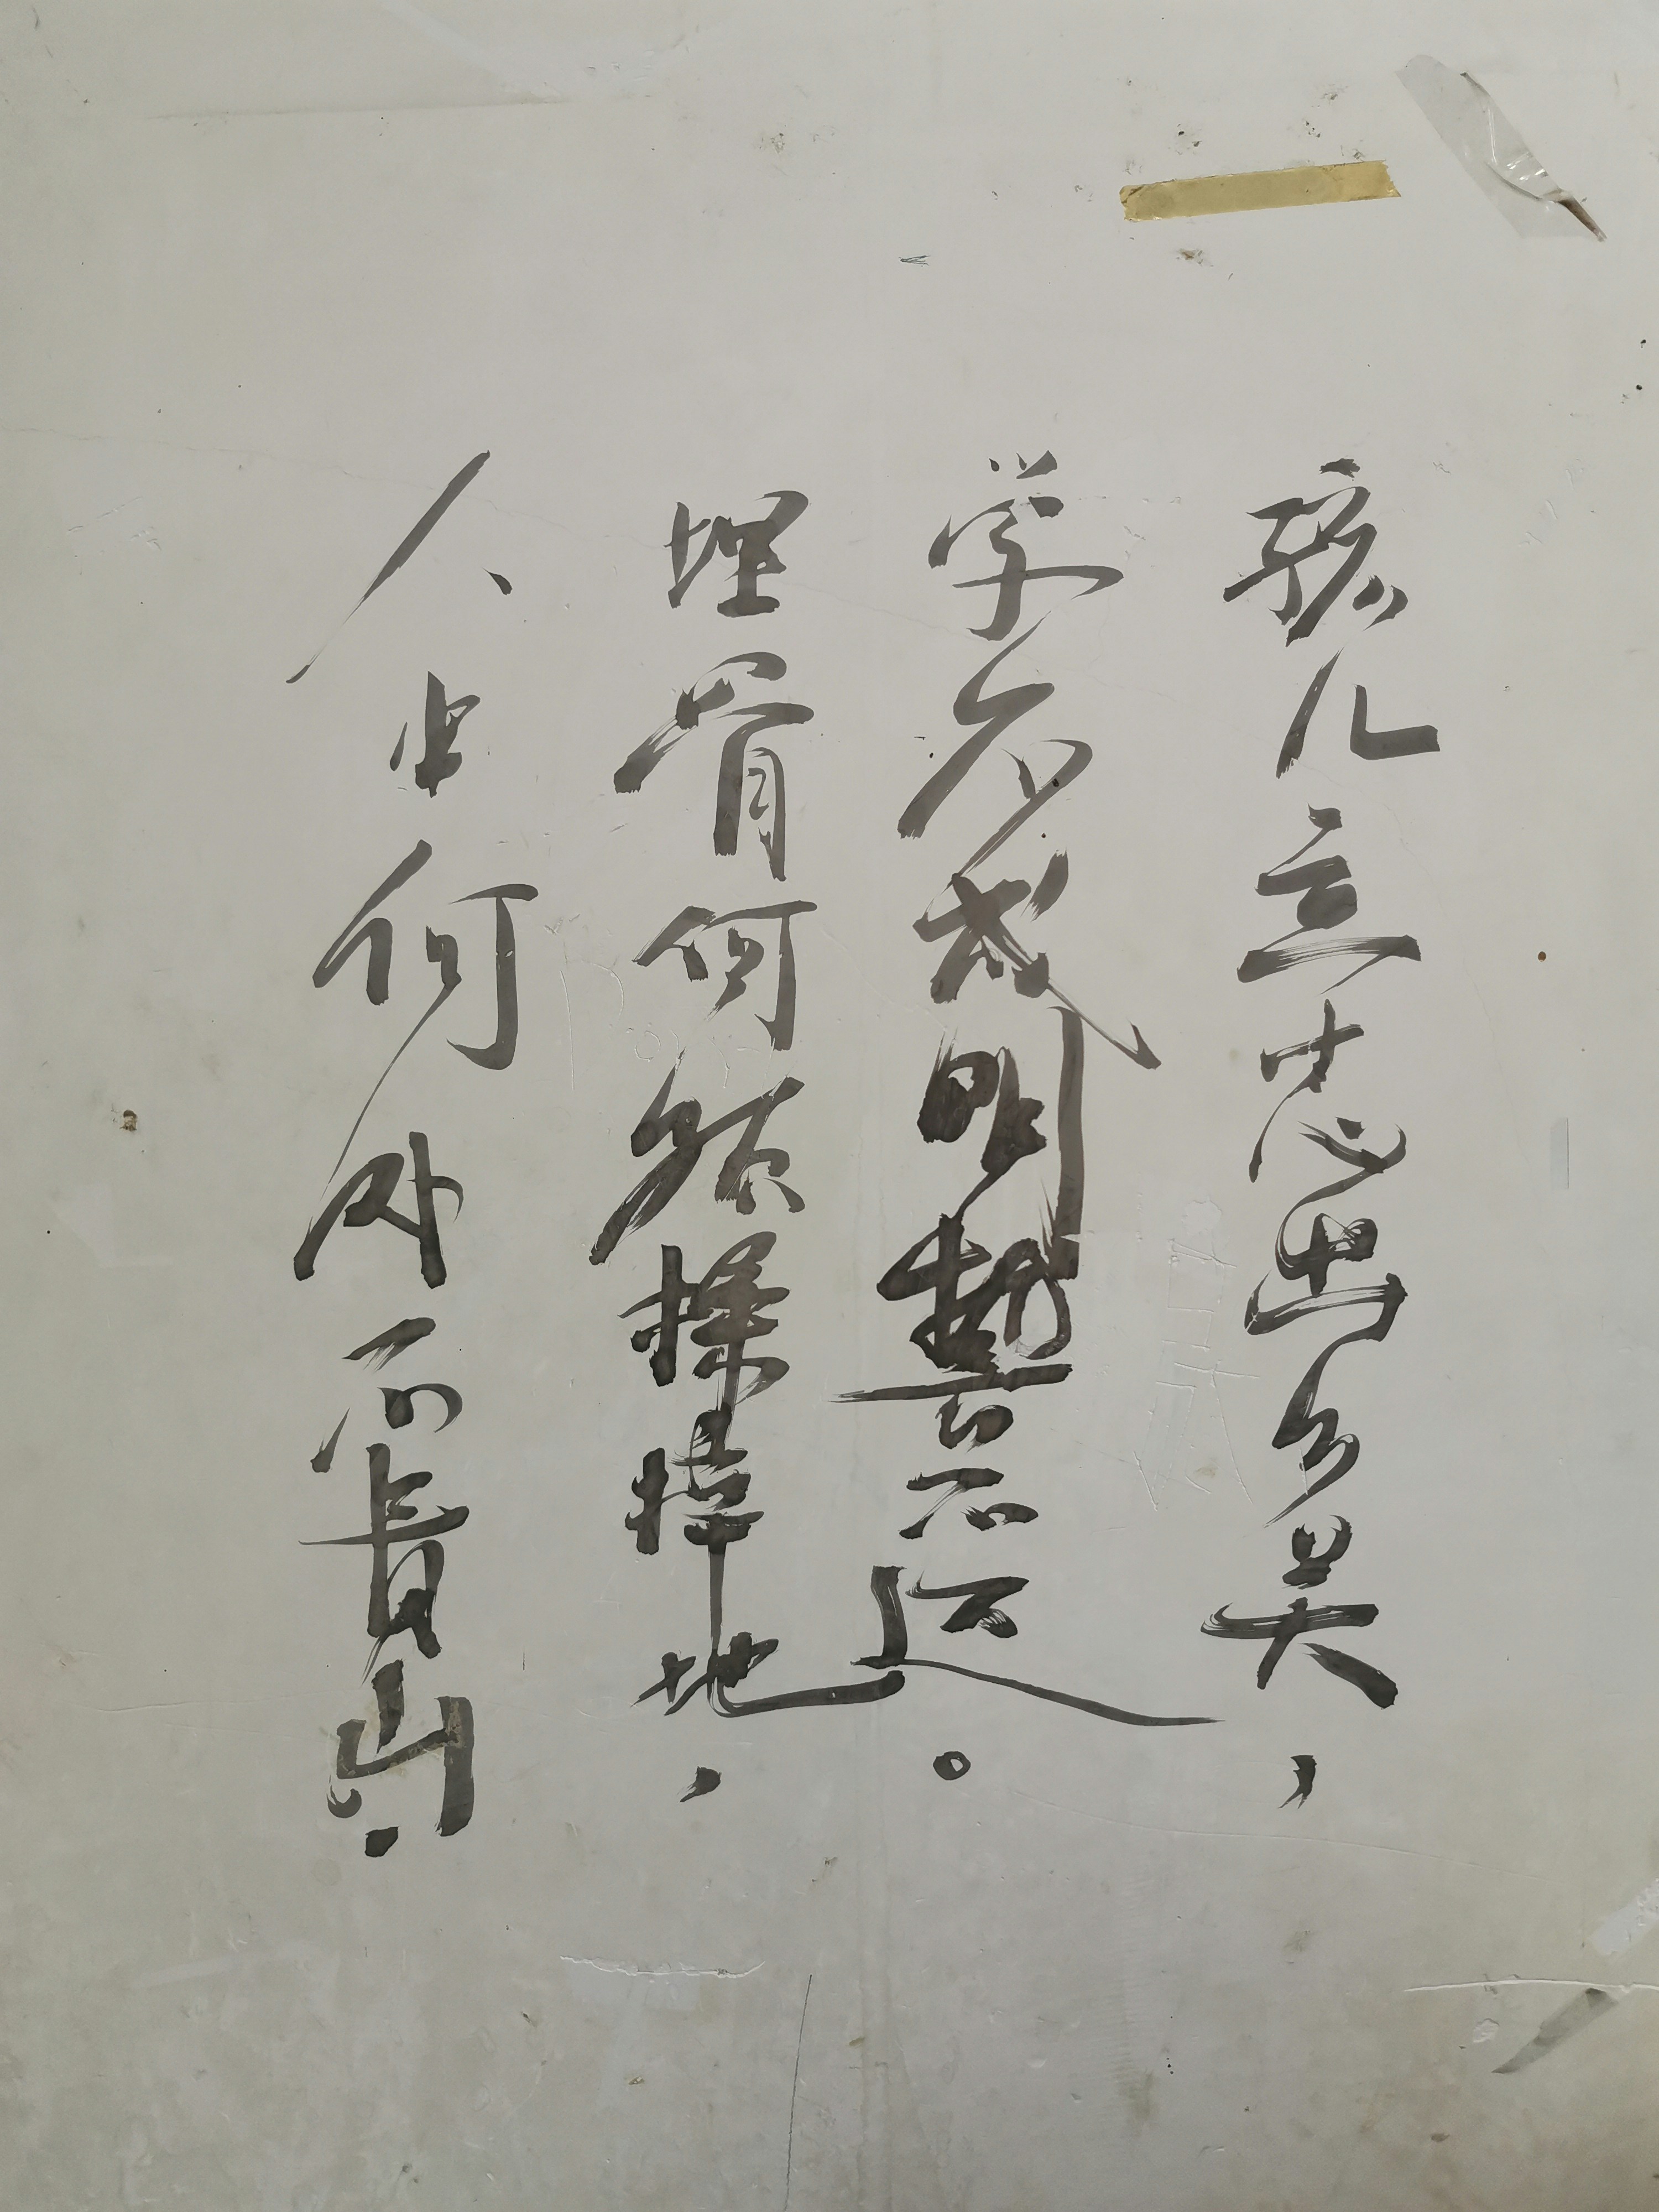 孩儿立志出乡关，
学不成明誓不还。
埋骨何须桑梓地，
人生何处不青山.